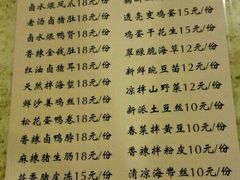 卤水煨凤爪18元/份
老汤卤猪肚18元/份
卤水鸭掌18元/份
香辣金钱肚18元/份
红油卤猪耳18元/份
天然拌海蜇18元/份
鲜沙姜鸡丝18元/份
松花蛋鸭卷18元/份
香辣卤鸭脖18元/份
麻辣猪生肠18元/份
花香猪皮冻15元/份
透亮支鸡宴15元/份
鸡宴干花生15元/份
翠绿脆海草12元/份
新鲜豌豆苗12元/份
凉拌山野菜12元/份
新派土豆丝10元/份
春菜拌黄豆10元/份
香辣拌粉皮10元/份
清凉海带丝10元/份